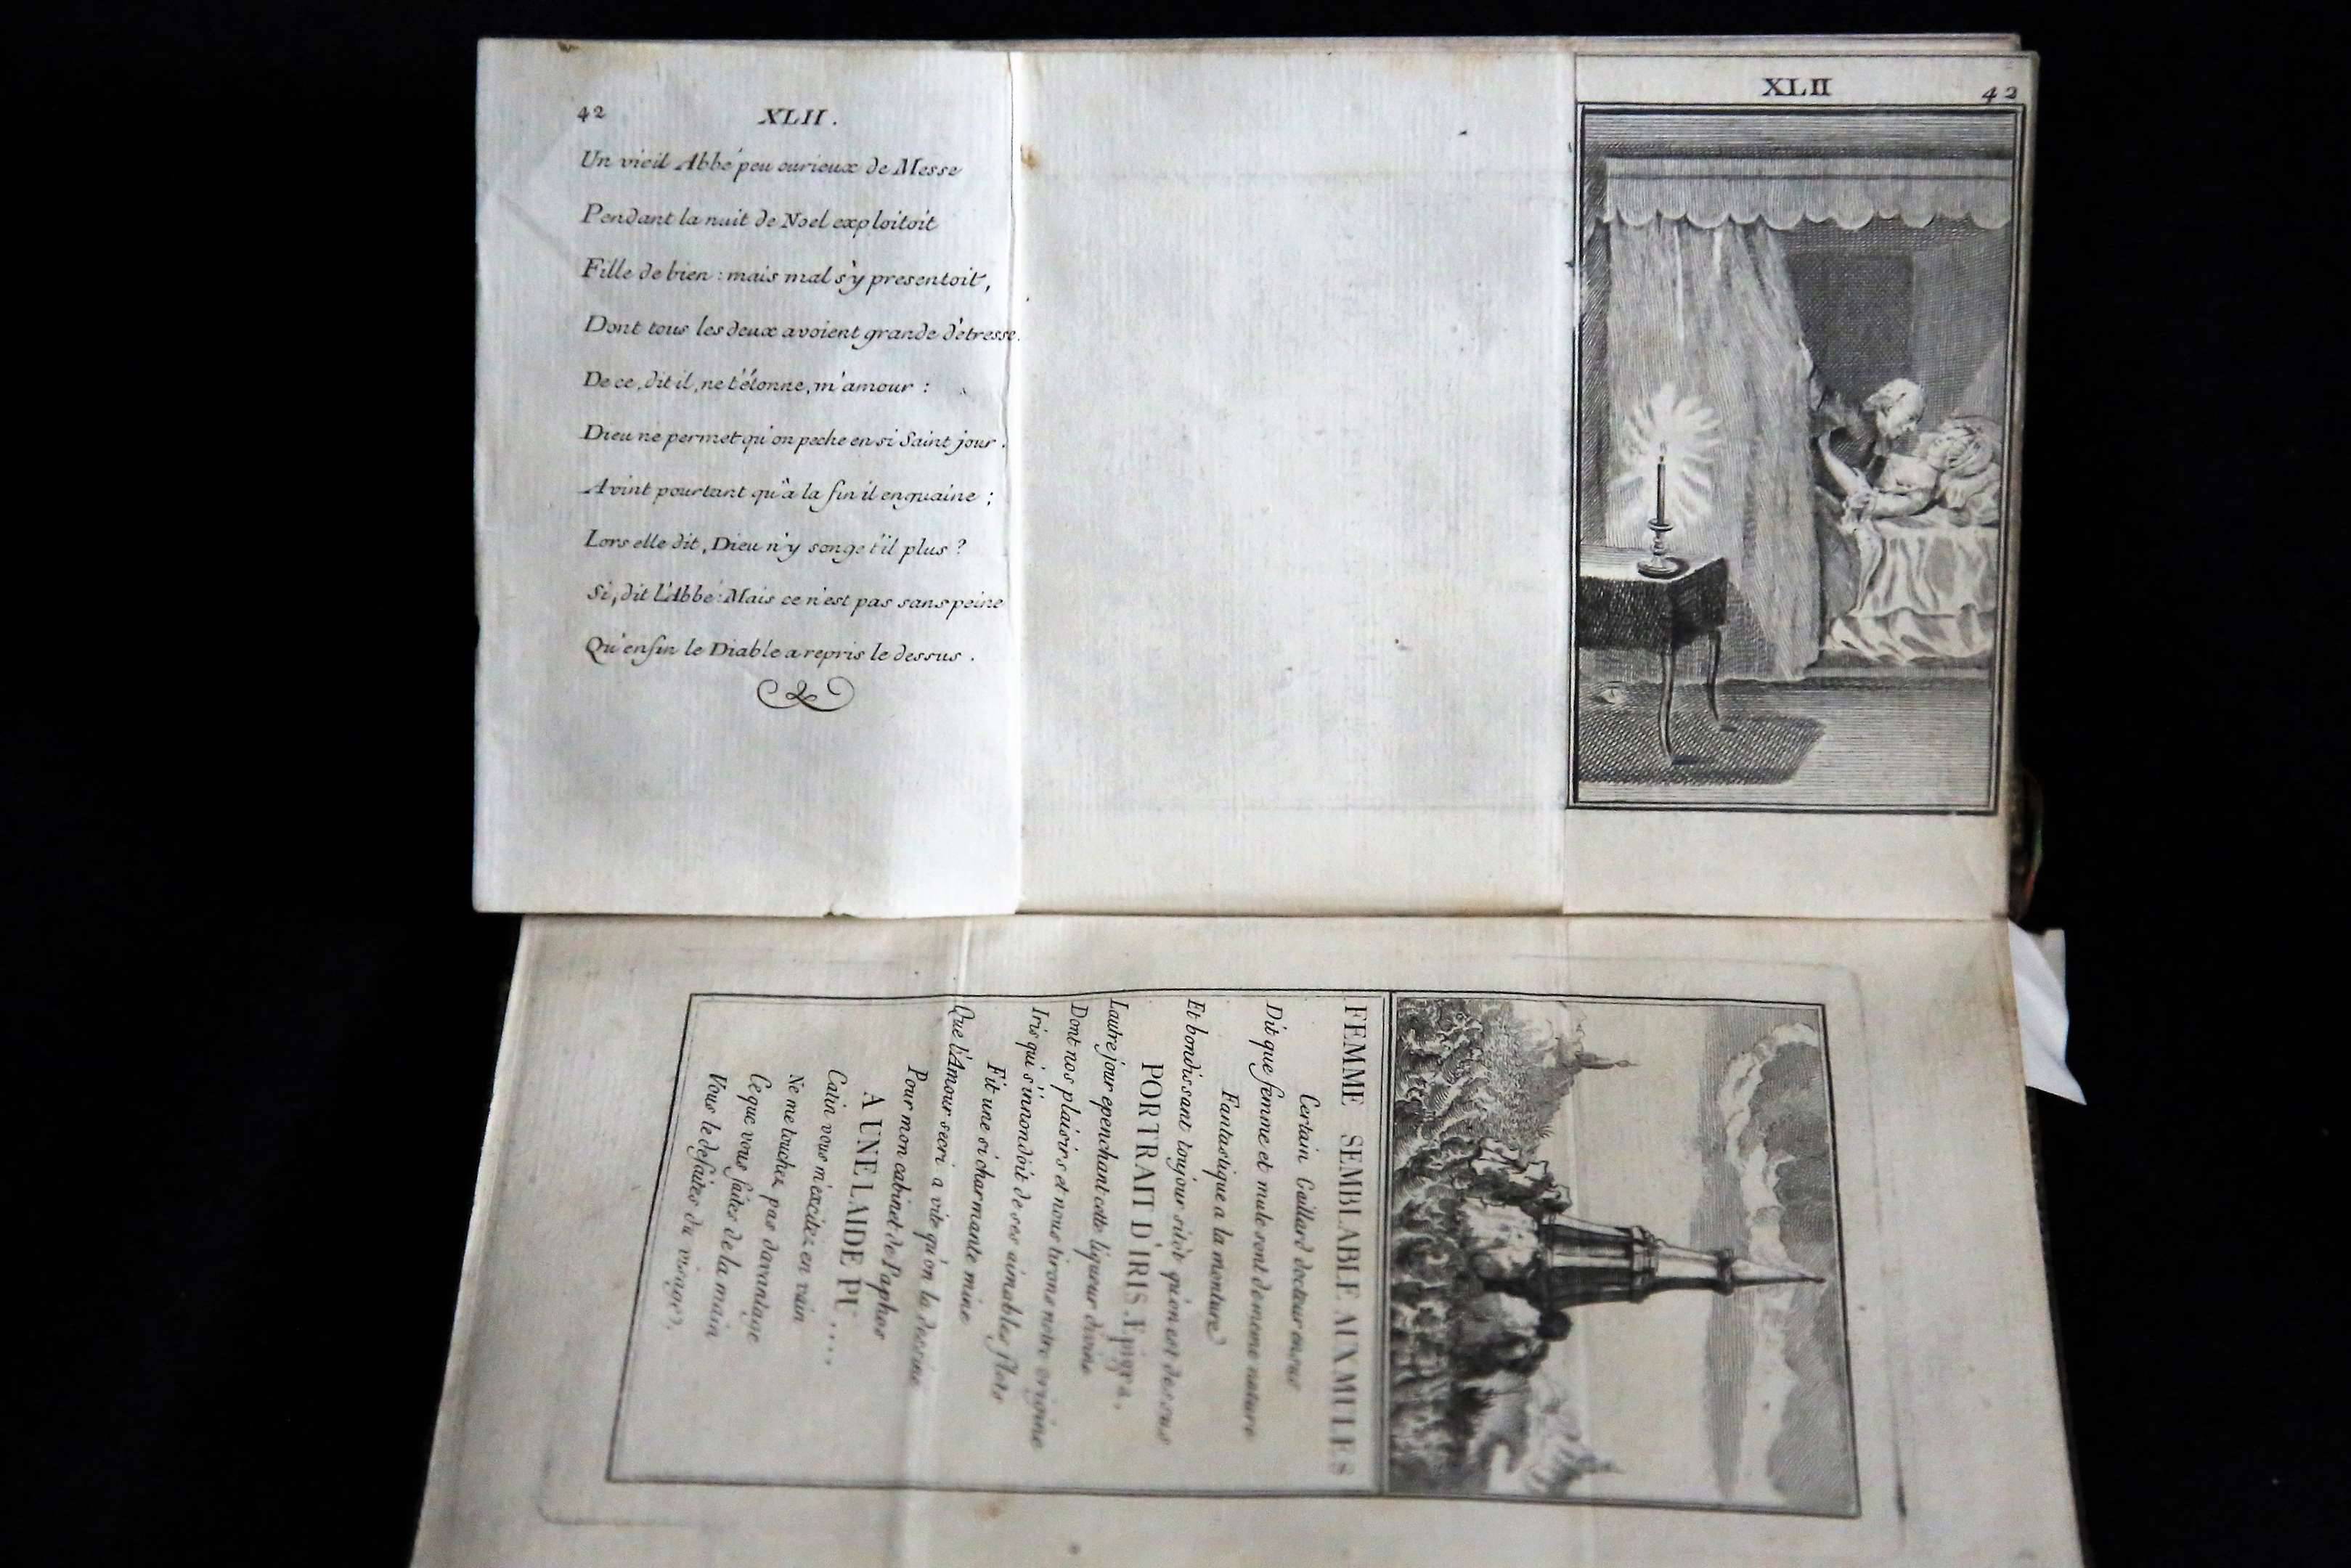 42
XLII.
Un vieil Abbé peu curieux de Messe
Pendant la nuit de Noel exploitoit
Fille de bien : mais mal s'y presentoit,
Dont tous les deux avoient grande détresse.
De ce, dit il, ne t'étonne, m'amour :
Dieu ne permet qu'on peche en si Saint jour.
Avint pourtant qu'à la fin il enguaine ;
Lors elle dit, Dieu n'y songe t'il plus ?
Si, dit l'Abbé : Mais ce n'est pas sans peine
Qu'enfin le Diable a repris le dessus.
XLII
42
FEMME SEMBLABLE AUX MULES
Certain Gaillard docteur en sus
Dit que femme et mule sont de meme nature
Fantastique a la monture
Et bondissant toujour sitôt qu'on est dessus
PORTRAIT D'IRIS. Epigra.
Lautre jour epenchant cette liqueur divine
Dont nos plaisirs et nous tirons notre origine
Iris qui s'innondoit de ses aimables flots
Fit une si charmante mine
Que l'Amour secri a vite qu'on la dessine
Pour mon cabinet de Paphos
A UNE LAIDE PU....
Catin vous m'excitez en vain
Ne me touchez pas davantage
Ce que vous faites de la main
Vous le defaites du visage.